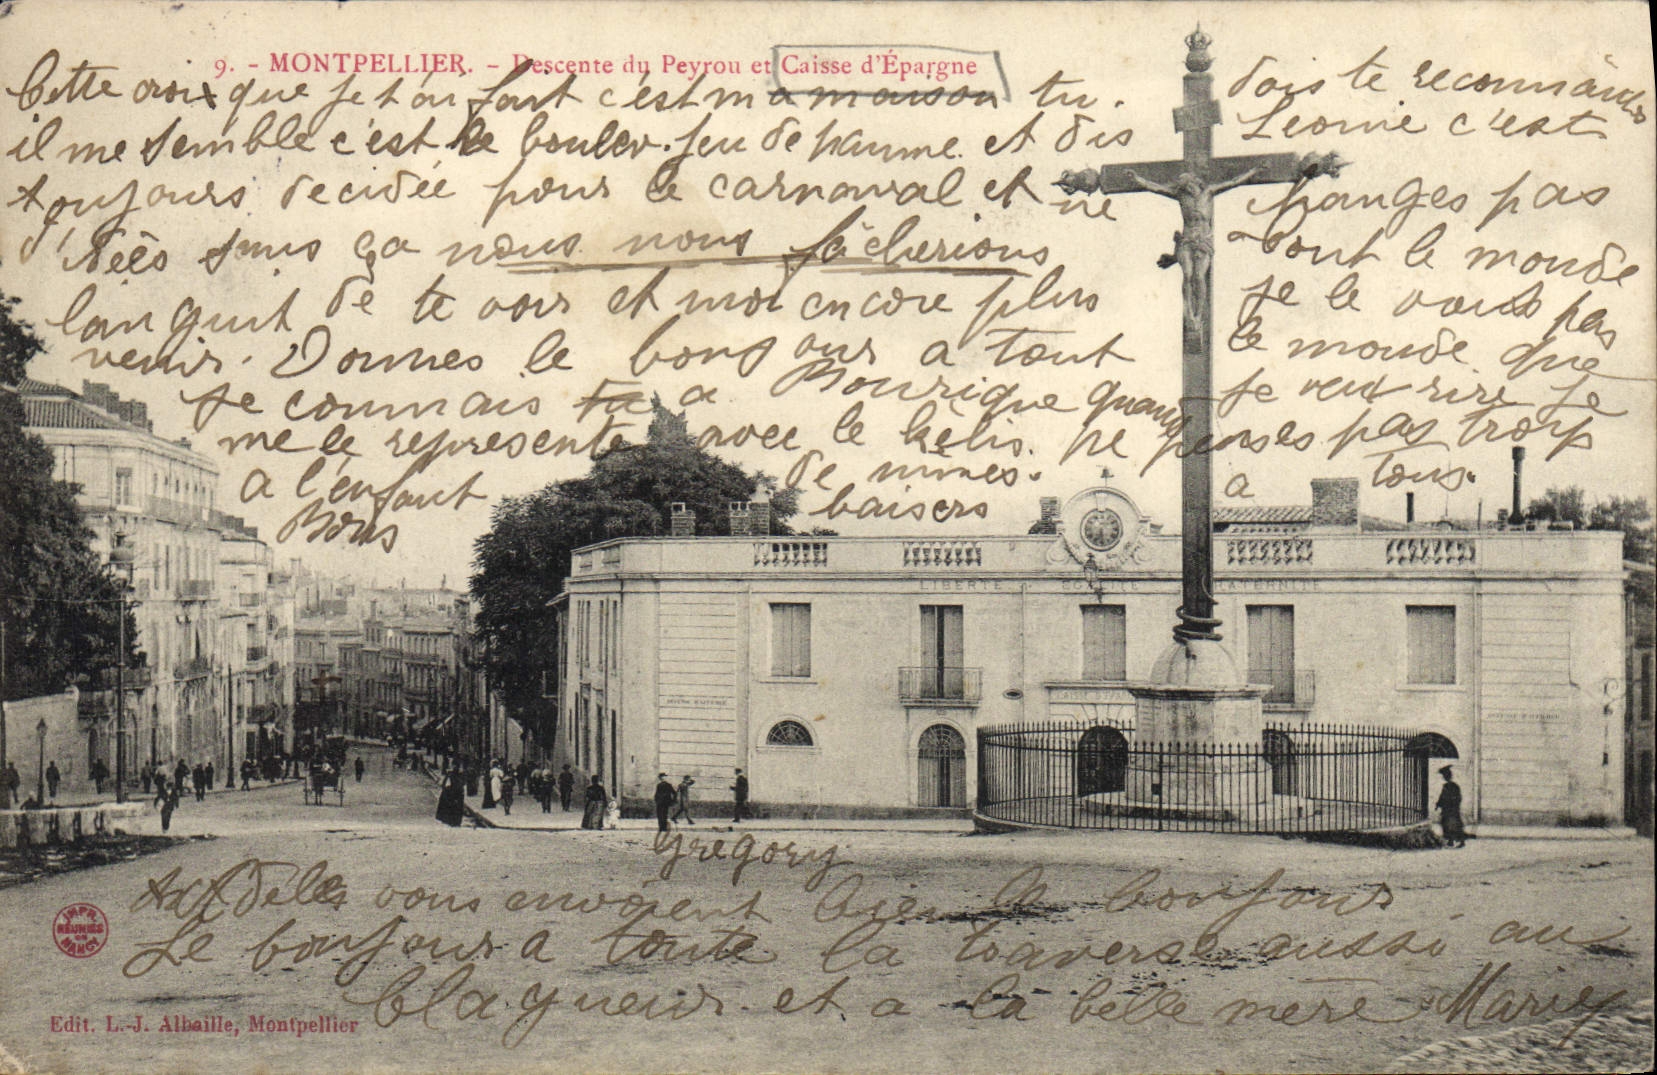 9. - MONTPELLIER. - Descente du Peyrou et Caisse d'Épargne
Cette croix que je t'ai fait c'est ma maison tu dois te reconnaître
il me semble c'est le boulev. jeu de paume et dis Leonie c'est
toujours decidée pour le carnaval et ne changes pas
d'idées ça nous nous fâcherions tout le monde
languit de te voir et moi encore plus je le vois pas
venir. Donnes le bonjour a tout le monde que
je connais a Bourrique quand je veux rire je
me le represente avec le kélis. ne penses pas trop
a l'enfant de nimes. a tous.
Bons baisers
LIBERTE EGALITE FRATERNITE
Gregory
et Adele vous envoient bien le bonjour
Le bonjour a toute la traverse aussi au
blagueur et a la belle mère Marie
IMPR. REUNIES DE NANCY
Edit. L.-J. Albaille, Montpellier